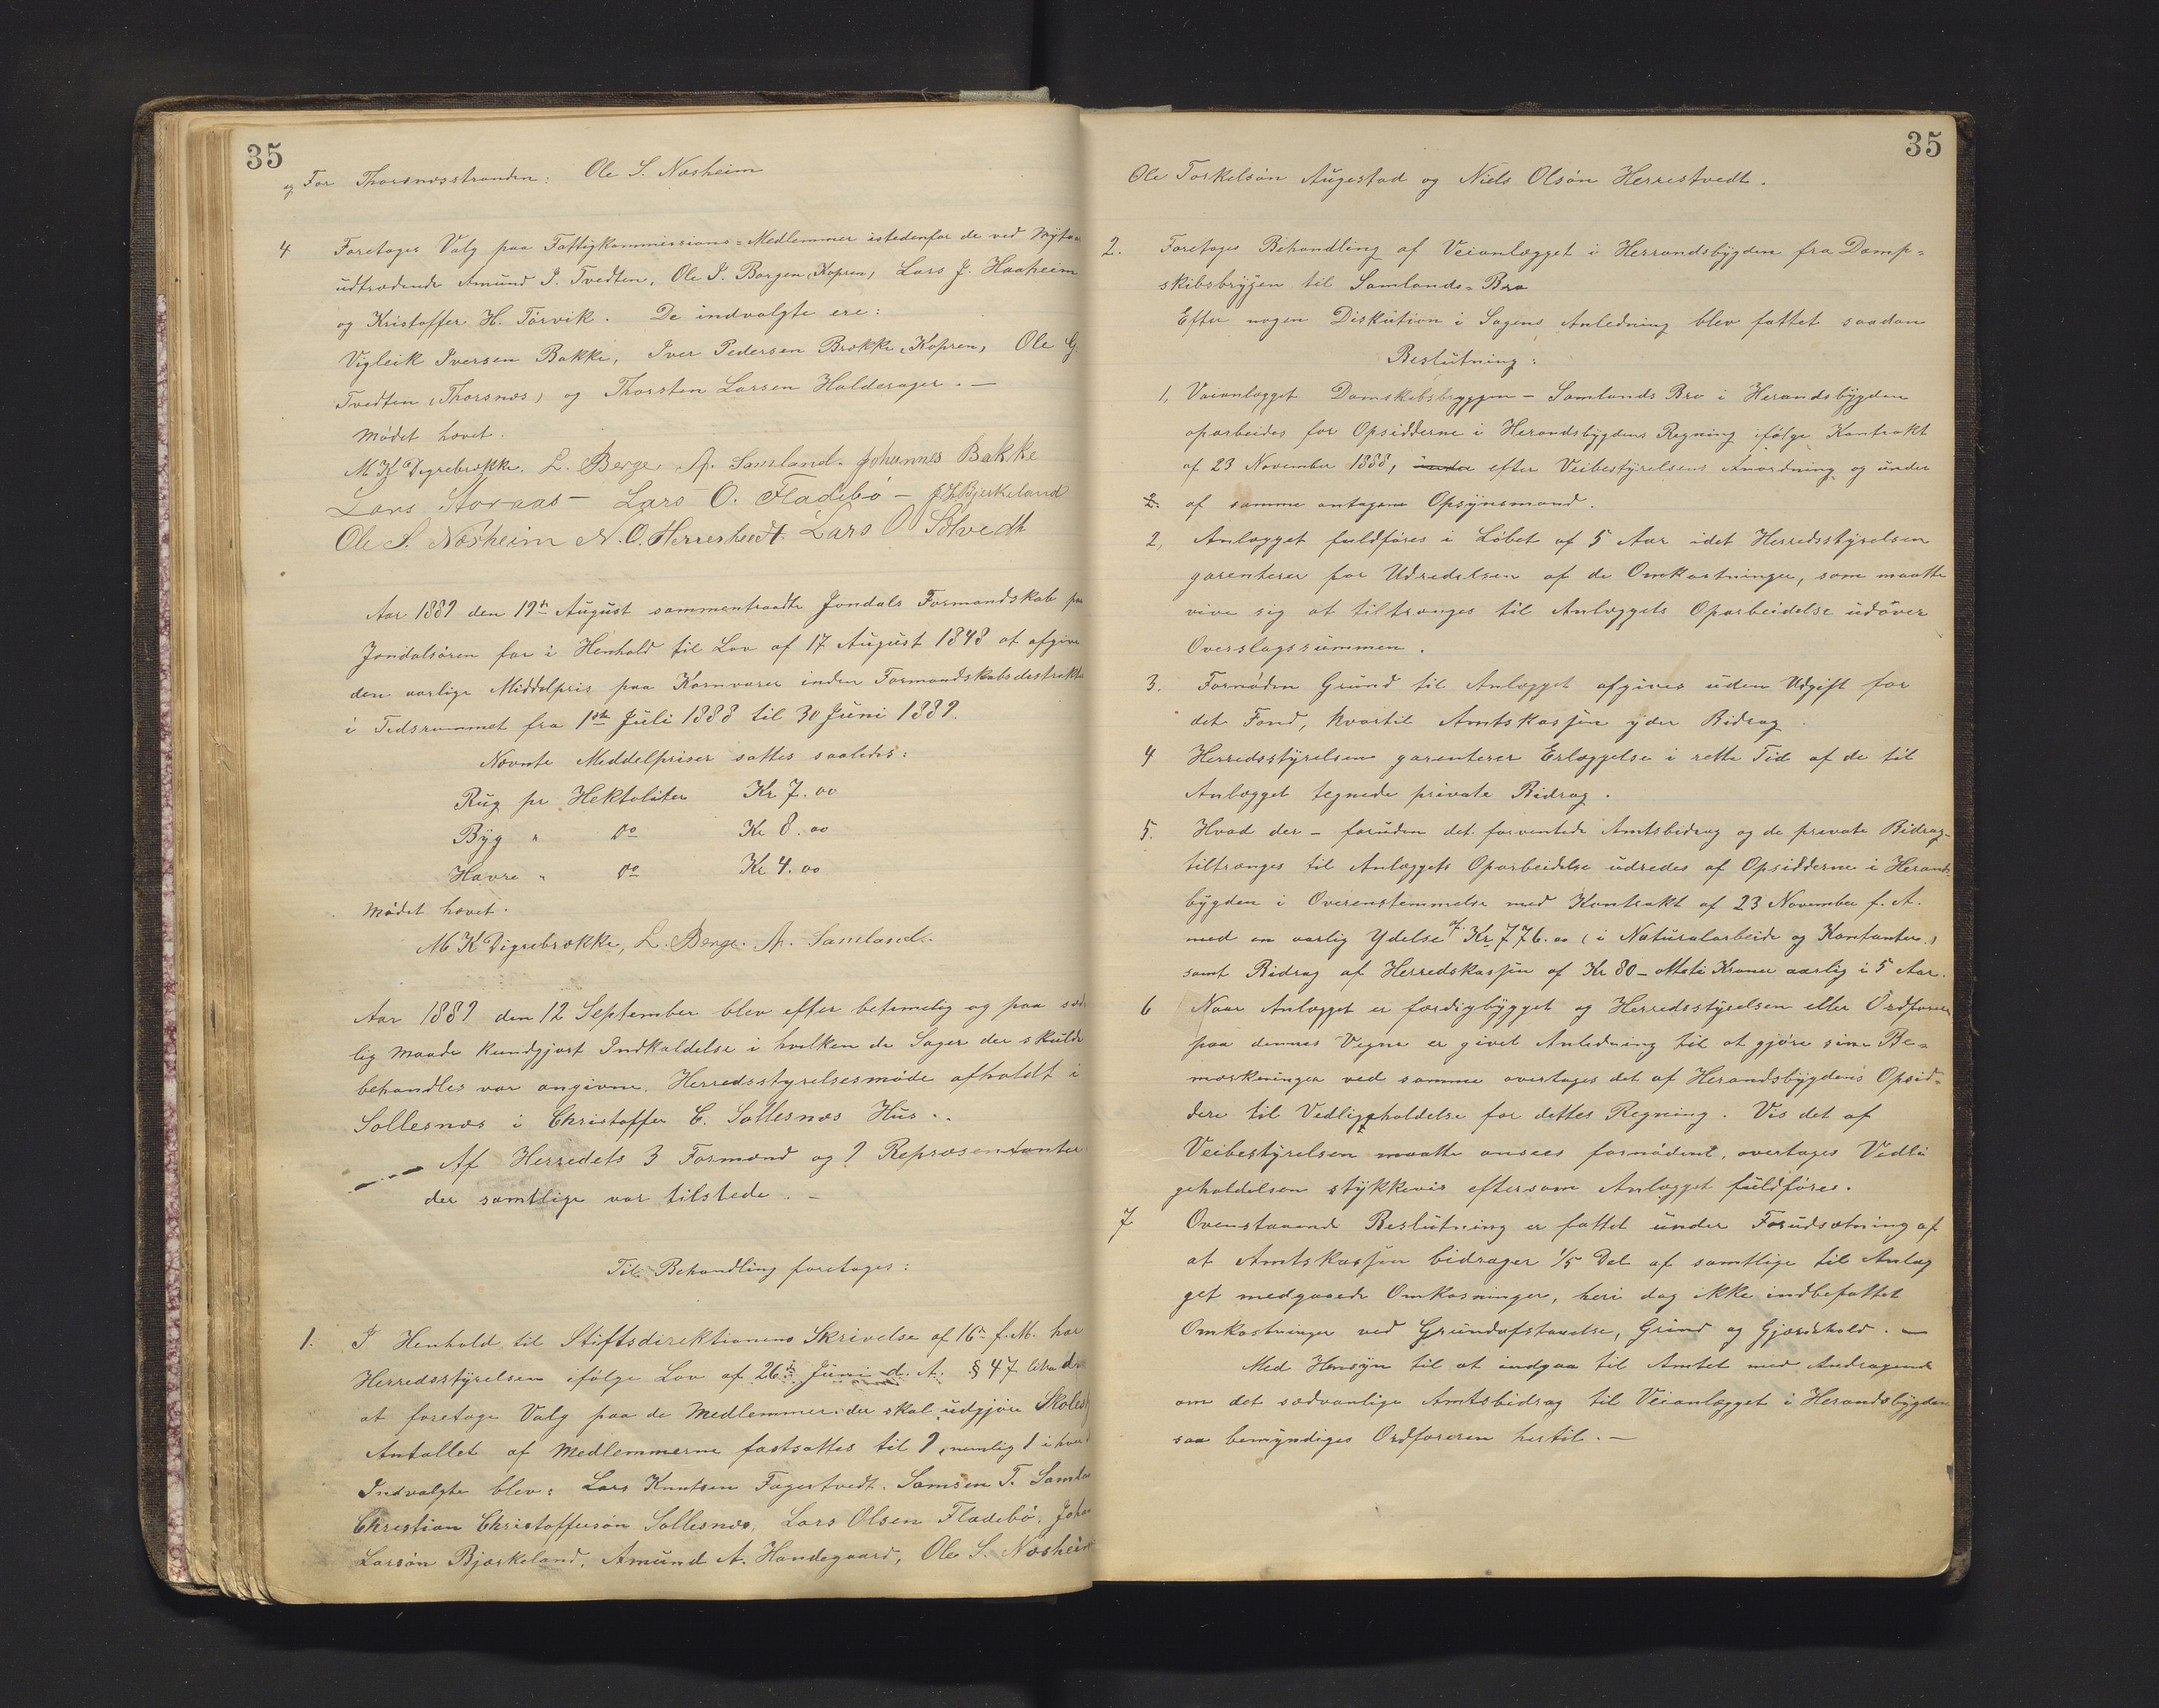 35
og For Thorsnæsstranden: Ole S. Næsheim
4 Foretages Valg paa Fattigkommissions=Medlemmer istedenfor de ved Nytaar
udtrædende Amund I. Tvedten, Ole I. Borgen, Kopren, Lars J. Haaheim
og Kristoffer H. Törvik. De indvalgte ere:
Vigleik Iversen Bakke, Iver Pedersen Brække (Kopren, Ole G.
Tvedten (Thorsnæs) og Thorsten Larsen Halderager. —
Mödet hævet.
M K Digrebrække. L. Berge. A. Samland. Johannes Bakke
Lars Storaas — Lars O. Fladebö — J. L. Bjerkeland
Ole S. Næsheim N. O. Herrestvedt. Lars O Solvedt
Aar 1889 den 19de August sammentraadte Jondals Formandskab paa
Jondalsören for i Henhold til Lov af 17 August 1848 at afgive
den aarlige Middelpris paa Kornvarer inden Formandskabsdestrikte
i Tidsrummet fra 1ste Juli 1888 til 30 Juni 1889.
Nævnte Meddelpriser sattes saaledes:
Rug pr Hektoliter Kr 7.00
Byg " Do Kr 8.00
Havre " Do Kr 4.00
Mödet hævet.
M K Digrebrække, L. Berge. A. Samland.
Aar 1889 den 12 September blev efter betimelig og paa sæd
lig Maade kundgjort Indkaldelse i hvilken de Sager der skulde
behandles var angivne. Herredsstyrelsesmöde afholdt i
Sollesnæs i Christoffer C. Sollesnæs Hus..
Af Herredets 3 Formænd og 9 Repræsentanter
der samtlige var tilstede. —
Til Behandling foretages:
1. I Henhold til Stiftsdirektionens Skrivelse af 16de f. M. har
Herredsstyrelsen ifölge Lov af 26de Juni d. A. § 47 litra d
at foretage Valg paa de Medlemmer der skal udgjöre Skolest
Antallet af Medlemmerne fastsattes til 9, nemlig 1 i hver
Indvalgte blev: Lars Knutsen Fagertvedt. Samson T. Samla
Christian Christoffersön Sollesnæs, Lars Olsen Fladebö, Joha
Larsön Bjærkeland, Amund A. Handegaard, Ole S. Næsheim
35
Ole Torkelsön Augestad og Niels Olsön Herrestvedt.
2. Foretages Behandling af Veianlægget i Herrandsbygden fra Damp=
skibsbryggen til Samlands=Bro
Efter nogen Diskution i Sagens Anledning blev fattet saadan
Beslutning:
1, Veianlægget Damskibsbryggen — Samlands Bro i Herandsbygden
oparbeides for Opsidderne i Herandsbygdens Regning ifölge Kontrakt
af 23 November 1888, under efter Veibestyrelsens Anordning og under
2. af samme antagene Opsynsmand.
2, Anlægget fuldföres i Löbet af 5 Aar idet Herredsstyrelsen
garenterer for Udredelsen af de Omkostninger, som maatte
vise sig at tiltrænges til Anlæggets Oparbeidelse udover
Overslagssummen.
3. Fornöden Grund til Anlægget afgives uden Udgift for
det Fond, hvortil Amtskassen yder Bidrag.
4 Herredsstyrelsen garenterer Erlæggelse i rette Tid af de til
Anlægget tegnede private Bidrag.
5. Hvad der — foruden det forventede Amtsbidrag og de private Bidrag—
tiltrænges til Anlæggets Oparbeidelse udredes af Opsidderne i Herands
bygden i Overenstemmelse med Kontrakt af 23 November f. A.
med en aarlig Ydelse af Kr 776.00 (i Naturalarbeide og Kontanter)
samt Bidrag af Herredskassen af Kr 80 — otteti Kroner aarlig i 5 Aar.
6 Naar Anlægget er færdigbygget og Herredsstyrelsen eller Ordförer
paa dennes Vegne er givet Anledning til at gjöre sine Be=
mærkninger ved samme overtages det af Herandsbygdens Opsid=
dere til Vedligeholdelse for dettes Regning. Vis det af
Veibestyrelsen maatte ansees fornödent, overtages Vedli
geholdelsen stykkevis eftersom Anlægget fuldföres.
7 Ovenstaaende Beslutning er fattet under Forudsætning af
at Amtskassen bidrager 1/5 Del af samtlige til Anlæg
get medgaaede Omkosninger, heri dog ikke indbefattet
Omkostninger ved Grundafstaaelse, Grind og Gjærdehold. —
Med Hensyn til at indgaa til Amtet med Andragende
om det sædvanlige Amtsbidrag til Veianlægget i Herandsbygden
saa bemyndiges Ordföreren hertil. —